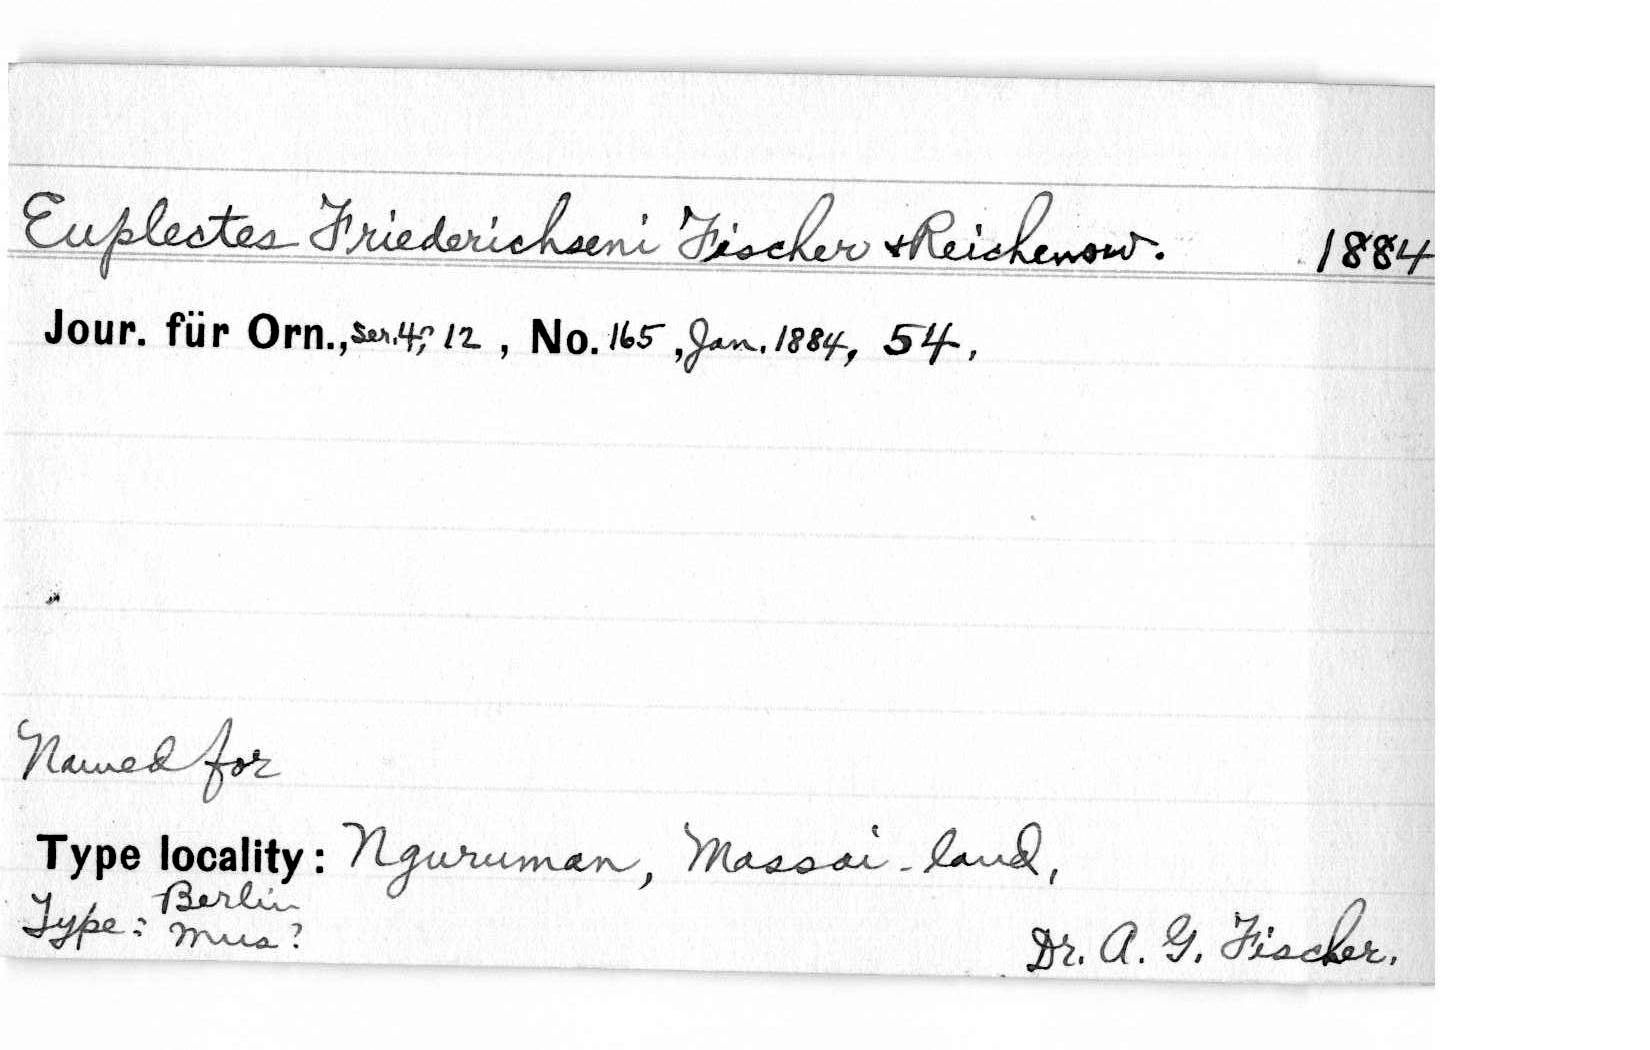 Euplectes Friederichseni Fischer & Reichenow. 1884
Jour. für Orn., Ser. 4, 12, No. 165, Jan. 1884, 54.
Named for
Type locality: Nguruman, Massai-land,
Type: Berlin Mus?
Dr. A. G. Fischer.